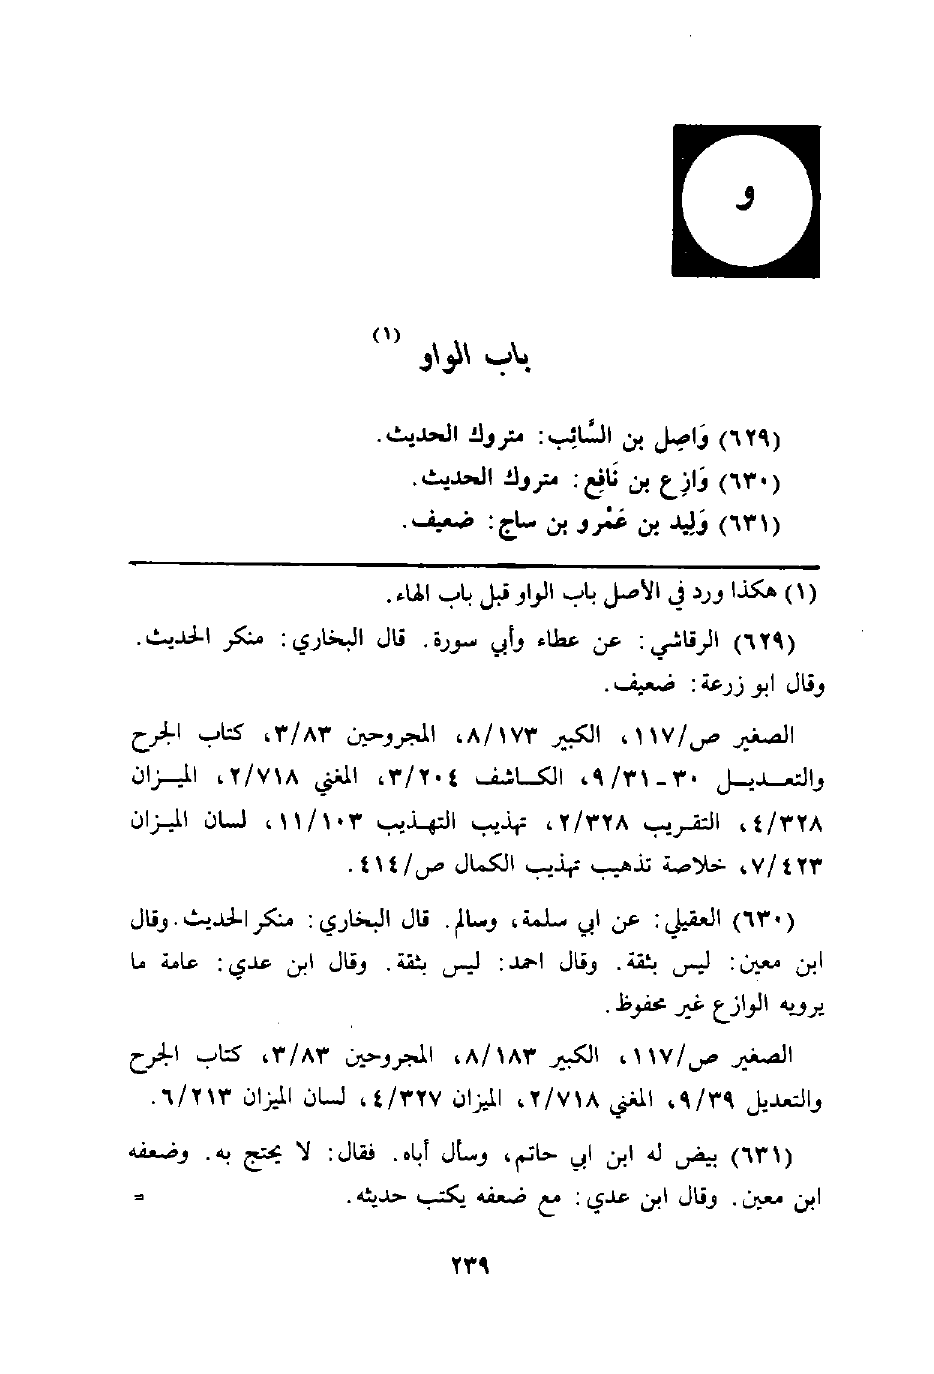 و
باب الواو (١)
(٦٢٩) وَاصِل بن السَّائِب: متروك الحديث.
(٦٣٠) وَازِع بن نَافِع: متروك الحديث.
(٦٣١) وَلِيد بن عَمْرو بن ساج: ضعيف.
(١) هكذا ورد في الأصل باب الواو قبل باب الهاء.
(٦٢٩) الرقاشي: عن عطاء وأبي سورة. قال البخاري: منكر الحديث.
وقال ابو زرعة: ضعيف.
الصغير ص/١١٧، الكبير ٨/١٧٣، المجروحين ٣/٨٣، كتاب الجرح
والتعديل ٣٠-٩/٣١، الكاشف ٣/٢٠٤، المغني ٢/٧١٨، الميزان
٤/٣٢٨، التقريب ٢/٣٢٨، تهذيب التهذيب ١١/١٠٣، لسان الميزان
٧/٤٢٣، خلاصة تذهيب تهذيب الكمال ص/٤١٤.
(٦٣٠) العقيلي: عن ابي سلمة، وسالم. قال البخاري: منكر الحديث. وقال
ابن معين: ليس بثقة. وقال احمد: ليس بثقة. وقال ابن عدي: عامة ما
يرويه الوازع غير محفوظ.
الصغير ص/١١٧، الكبير ٨/١٨٣، المجروحين ٣/٨٣، كتاب الجرح
والتعديل ٩/٣٩، المغني ٢/٧١٨، الميزان ٤/٣٢٧، لسان الميزان ٦/٢١٣.
(٦٣١) بيض له ابن ابي حاتم، وسأل أباه. فقال: لا يحتج به. وضعفه
ابن معين. وقال ابن عدي: مع ضعفه يكتب حديثه. =
٢٣٩